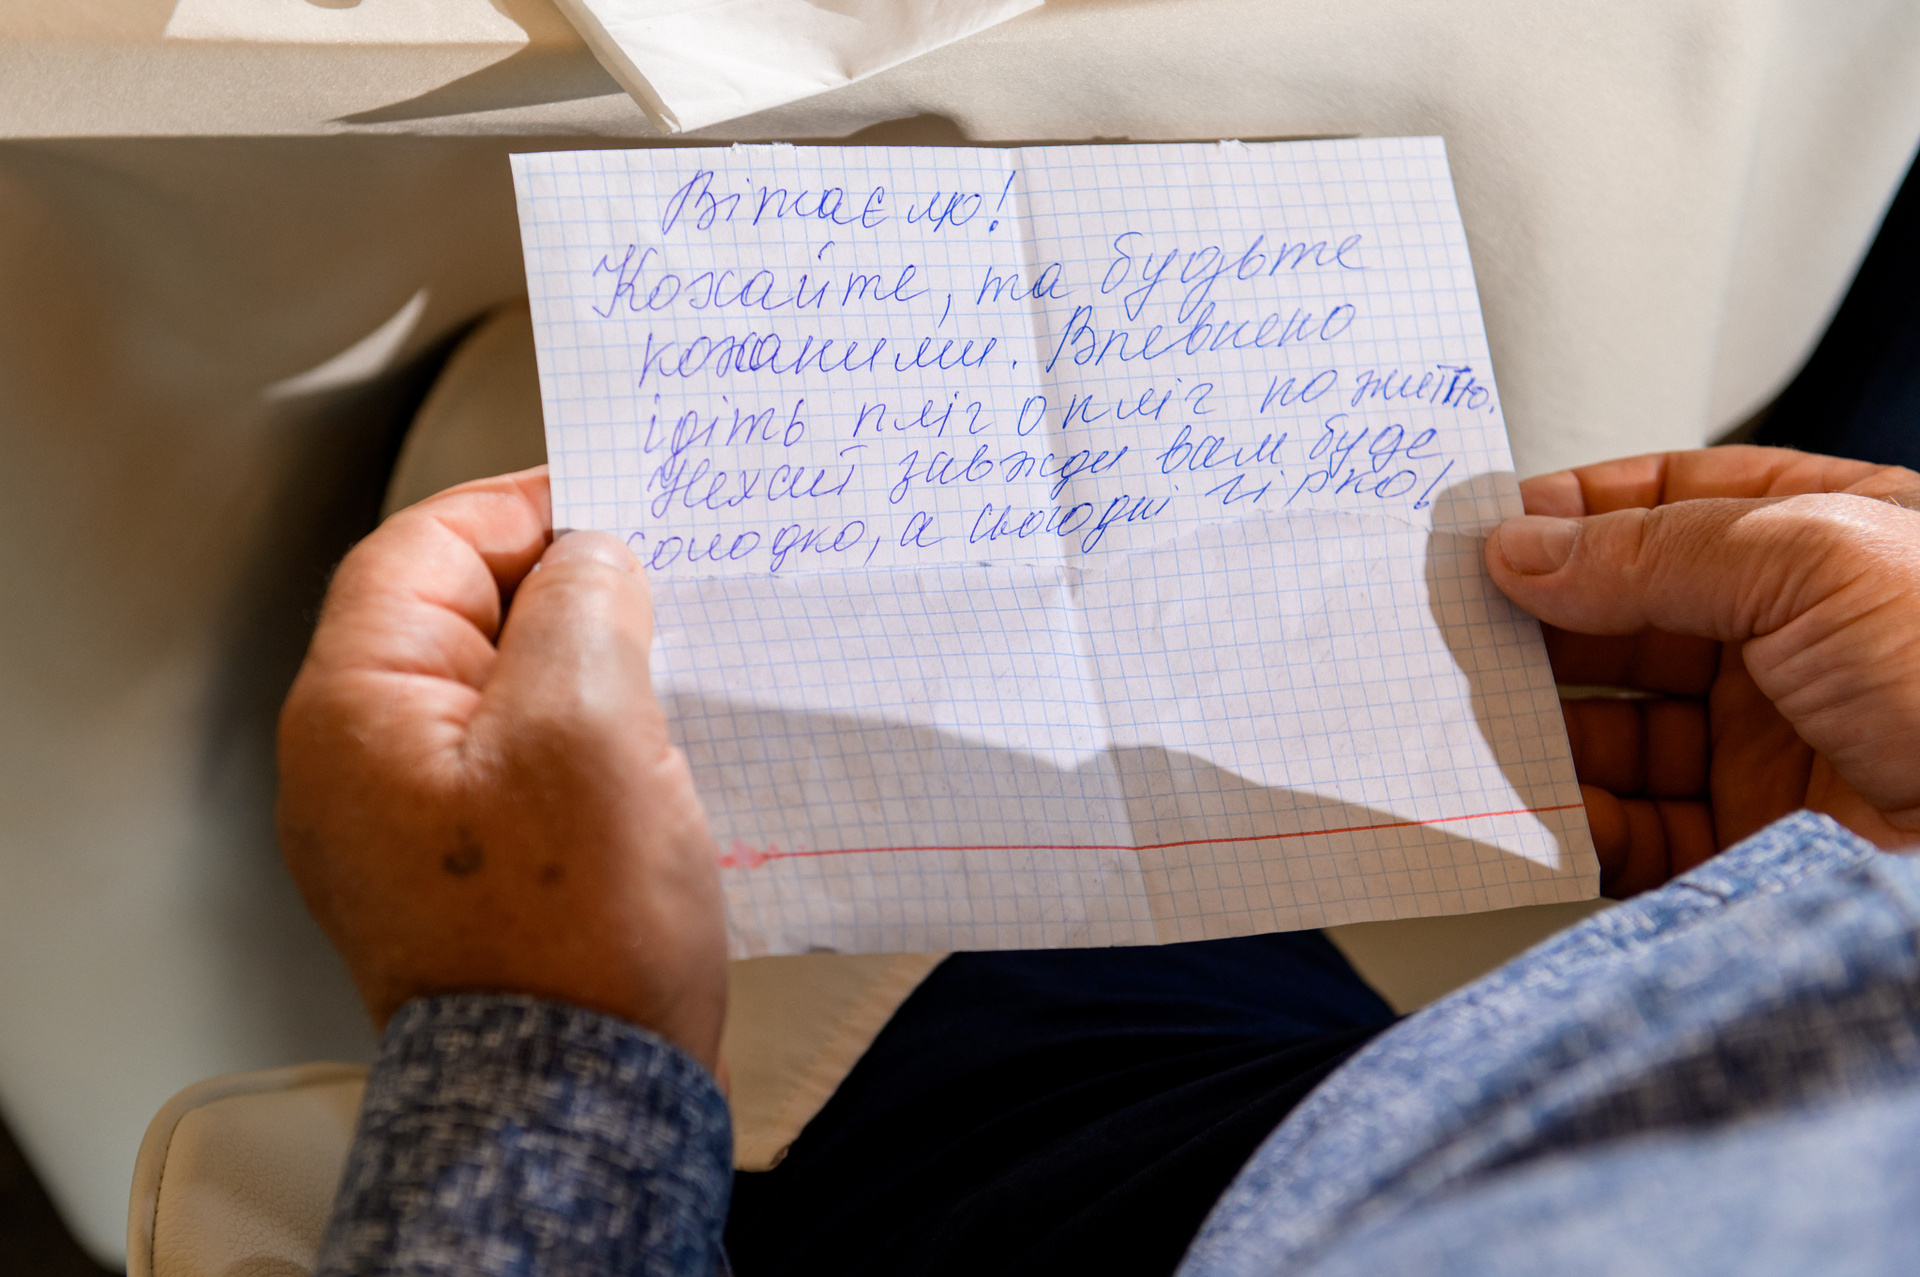 Вітаємо!
Кохайте, та будьте
коханими. Впевнено
ідіть пліг о пліг по життю.
Нехай завжди вам буде
солодко, а сьогодні гірко!